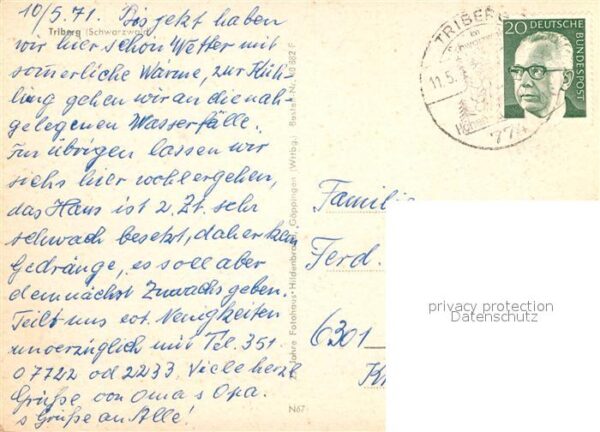 10/5.71. Bis jetzt haben
Triberg (Schwarzwald)
wir hier schön Wetter mit
sommerliche Wärme, zur Küh-
lung gehen wir an die nah
gelegenen Wasserfälle.
Im übrigen lassen wir
siehs hier wohl ergehen,
das Haus ist z. Zt. sehr
schwach besetzt, daher kein
Gedränge, es soll aber
demnächst Zuwachs geben.
Teilt uns evt. Neuigkeiten
unverzüglich mit Tel. 351.
07722 od 2233. Viele herzl
Grüße von Oma u Opa.
s Grüße an Alle!
Jahre Fotohaus Hildenbrand, Göppingen (Wttbg.) Bestell-Nr.
N67
TRIBERG
im
Schwarzwald
11.5.
774
20 DEUTSCHE
BUNDESPOST
Familie
Ferd.
6301
privacy protection
Datenschutz